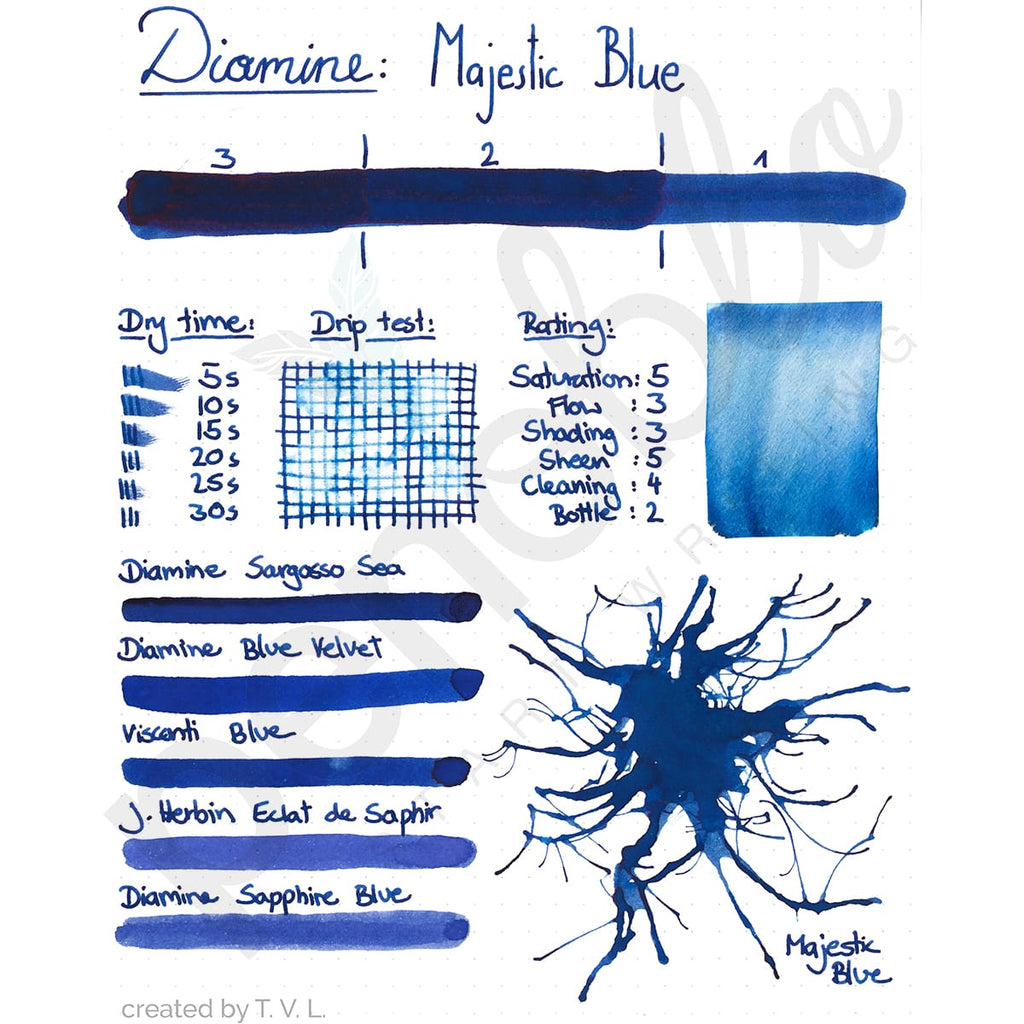 Diamine: Majestic Blue
3 2 1
Dry time:
5s
10s
15s
20s
25s
30s
Drip test:
Rating:
Saturation: 5
Flow : 3
Shading : 3
Sheen : 5
Cleaning : 4
Bottle : 2
Diamine Sargosso Sea
Diamine Blue Velvet
Visconti Blue
J. Herbin Eclat de Saphir
Diamine Sapphire Blue
Majestic
Blue
penoblo
START WRITING
created by T. V. L.